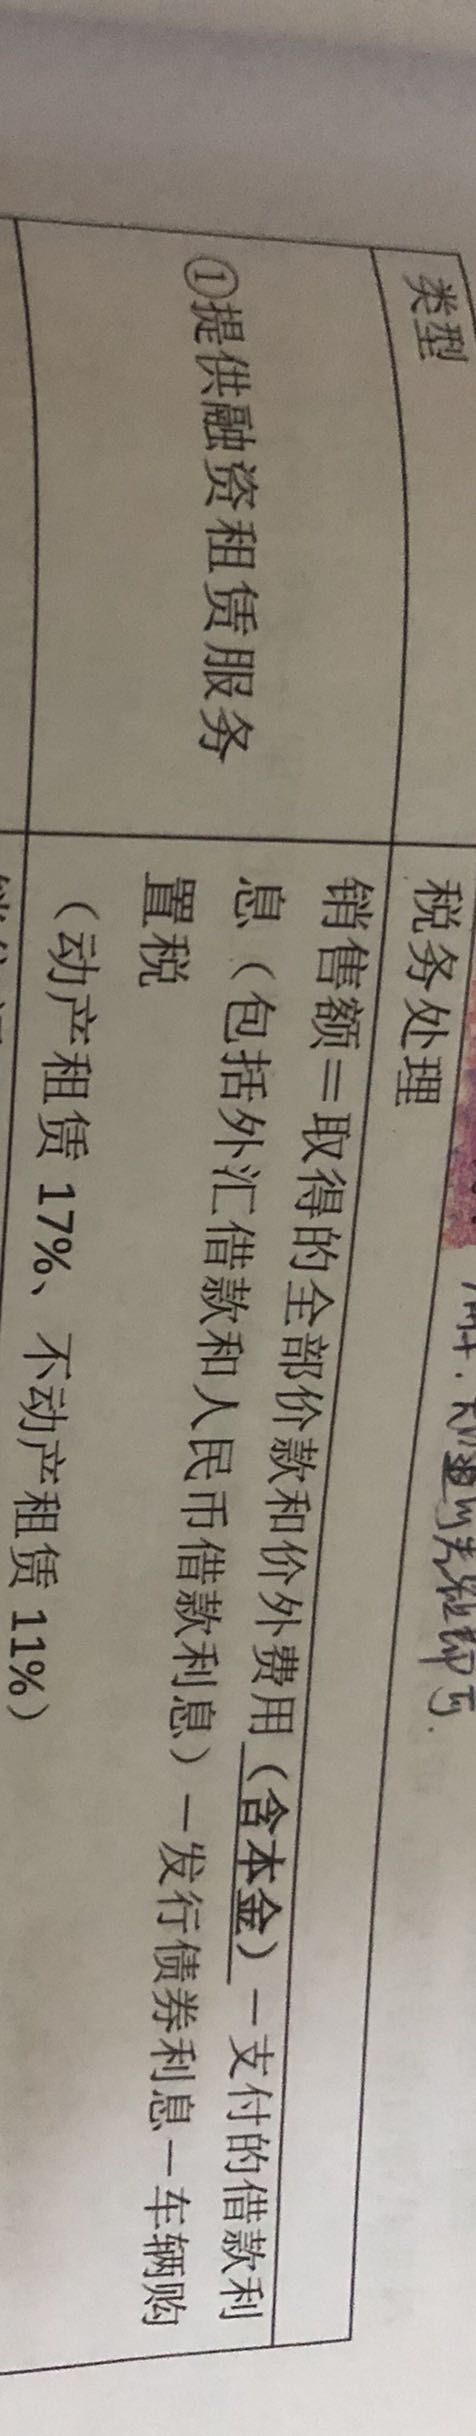 类型
税务处理
①提供融资租赁服务
销售额＝取得的全部价款和价外费用（含本金）－支付的借款利
息（包括外汇借款和人民币借款利息）－发行债券利息－车辆购
置税
（动产租赁 17%、不动产租赁 11%）